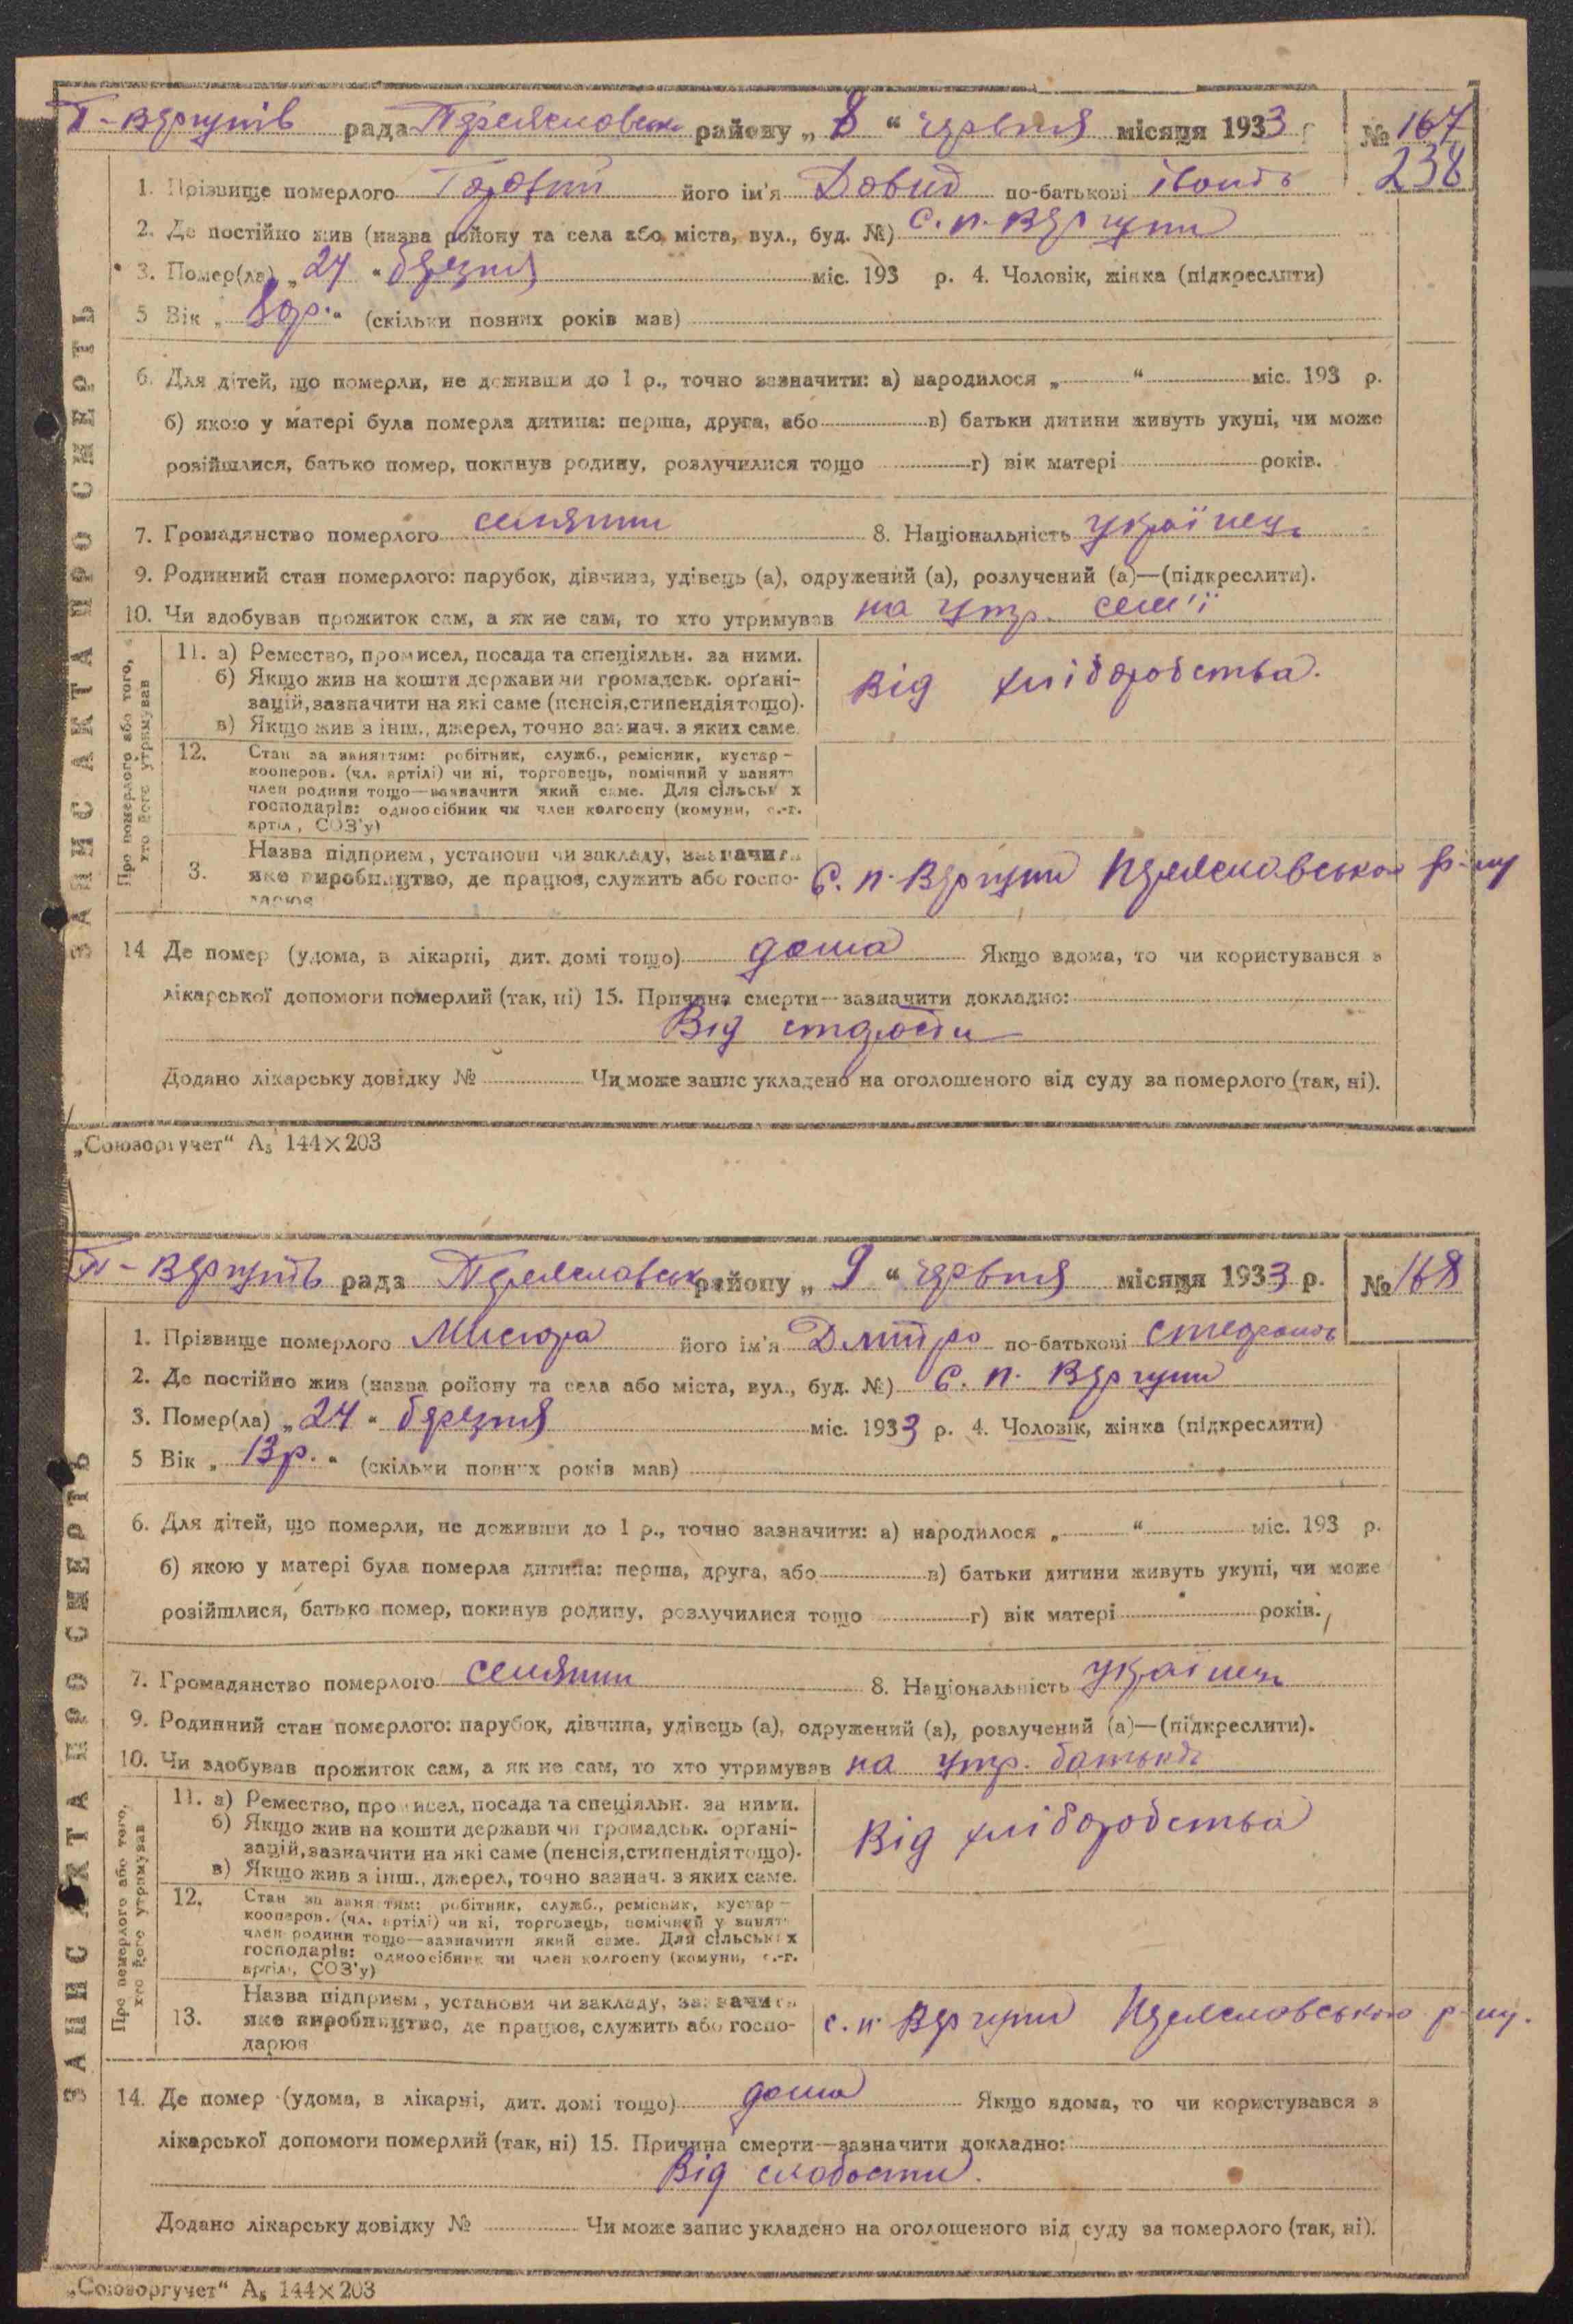 П-Вергунів рада Переясловськ району „ 8 “ червня місяця 1933 р № 167
238
1. Прізвище померлого його ім'я Довид по-батькові івонов
2. Де постійно жив (назва ройону та села або міста, вул., буд. №) с. п. Вергуни
3. Помер(ла) „ 24 “ березня міс. 193 р. 4. Чоловік, жінка (підкреслити)
5 Вік „ 80р. “ (скільки повних років мав)
6. Для дітей, що померли, не доживши до 1 р., точно зазначити: а) народилося „ “ міс. 193 р.
б) якою у матері була померла дитина: перша, друга, або в) батьки дитини живуть укупі, чи може
розійшлися, батько помер, покинув родину, розлучилися тощо г) вік матері років.
7. Громадянство померлого селянин 8. Національність українець
9. Родинний стан померлого: парубок, дівчина, удівець (а), одружений (а), розлучений (а)—(підкреслити).
10. Чи здобував прожиток сам, а як не сам, то хто утримував на утр. сем'ї
ЗАПИС АКТА ПРО СМЕРТЬ
Про померлого або того, хто його утримував
11. а) Ремество, промисел, посада та спеціяльн. за ними.
б) Якщо жив на кошти держави чи громадськ. орґані-
зацій, зазначити на які саме (пенсія, стипендія тощо).
в) Якщо жив з інш., джерел, точно зазнач. з яких саме.
Від хліборобства.
12. Стан за заняттям: робітник, служб., ремісник, кустар –
кооперов. (чл. артілі) чи ні, торговець, помічний у занятт
член родини тощо—зазначити який саме. Для сільськ х
господарів: одноосібник чи член колгоспу (комуни, с.-г.
артіл, СОЗ'у)
3. Назва підприєм, установи чи закладу, зазначити
яке виробництво, де працює, служить або госпо-
дарює
с. п. Вергуни Переясловського р-ну
14 Де помер (удома, в лікарні, дит. домі тощо) дома Якщо вдома, то чи користувався з
лікарської допомоги померлий (так, ні) 15. Причина смерти—зазначити докладно:
Від старости
Додано лікарську довідку № Чи може запис укладено на оголошеного від суду за померлого (так, ні).
„Союзоргучет“ А₅ 144×203
П-Вергунів рада Переясловськ району „ 9 “ червня місяця 1933 р. № 168
1. Прізвище померлого Мисюра його ім'я Дмитро по-батькові степонов
2. Де постійно жив (назва ройону та села або міста, вул., буд. №) с. п. Вергуни
3. Помер(ла) „ 24 “ березня міс. 1933 р. 4. Чоловік, жінка (підкреслити)
5 Вік „ 13р. “ (скільки повних років мав)
6. Для дітей, що померли, не доживши до 1 р., точно зазначити: а) народилося „ “ міс. 193 р.
б) якою у матері була померла дитина: перша, друга, або в) батьки дитини живуть укупі, чи може
розійшлися, батько помер, покинув родину, розлучилися тощо г) вік матері років.
7. Громадянство померлого селянин 8. Національність українець
9. Родинний стан померлого: парубок, дівчина, удівець (а), одружений (а), розлучений (а)—(підкреслити).
10. Чи здобував прожиток сам, а як не сам, то хто утримував на утр. батьків
ЗАПИС АКТА ПРО СМЕРТЬ
Про померлого або того, хто його утримував
11. а) Ремество, промисел, посада та спеціяльн. за ними.
б) Якщо жив на кошти держави чи громадськ. орґані-
зацій, зазначити на які саме (пенсія, стипендія тощо).
в) Якщо жив з інш., джерел, точно зазнач. з яких саме.
Від хліборобства
12. Стан за заняттям: робітник, служб., ремісник, кустар –
кооперов. (чл. артілі) чи ні, торговець, помічний у занятт
член родини тощо—зазначити який саме. Для сільськ х
господарів: одноосібник чи член колгоспу (комуни, с.-г.
артіл, СОЗ'у)
13. Назва підприєм, установи чи закладу, зазначить
яке виробництво, де працює, служить або госпо-
дарює
с. п. Вергуни Переясловського р-ну.
14. Де помер (удома, в лікарні, дит. домі тощо) дома Якщо вдома, то чи користувався з
лікарської допомоги померлий (так, ні) 15. Причина смерти—зазначити докладно:
Від слабости.
Додано лікарську довідку № Чи може запис укладено на оголошеного від суду за померлого (так, ні).
„Союзоргучет“ А₅ 144×203